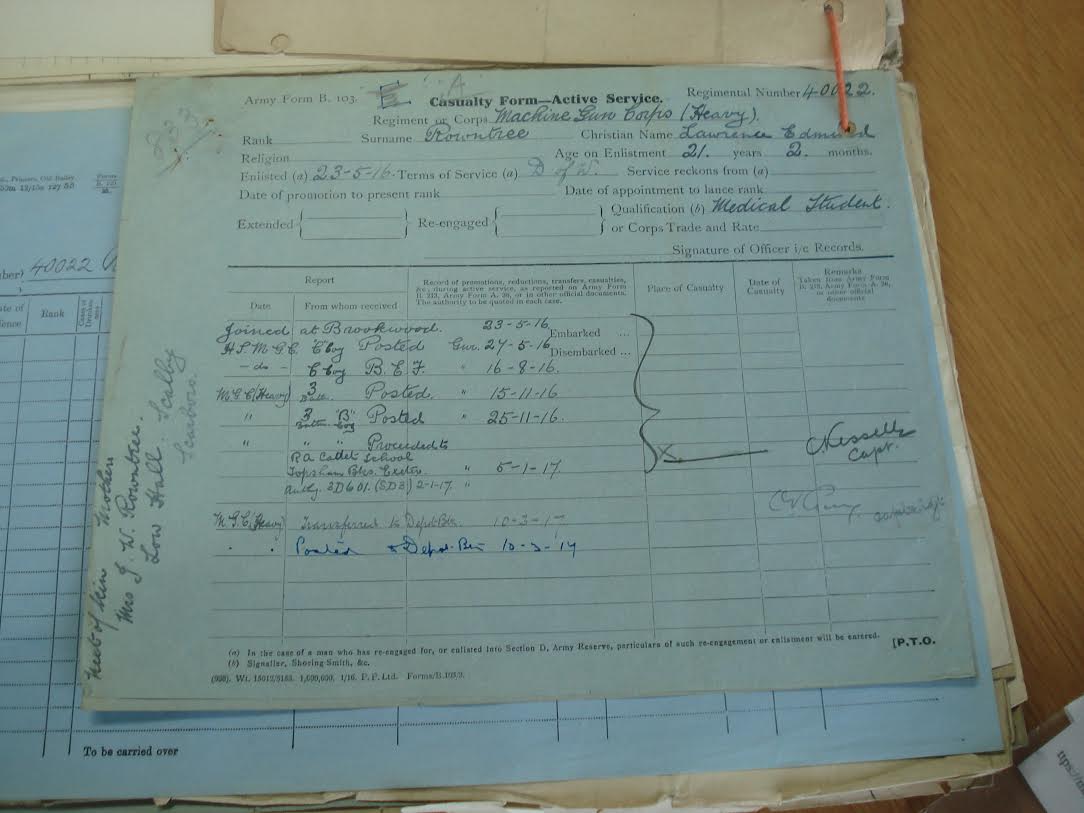 Army Form B. 103.
E
A
Casualty Form—Active Service.
Regimental Number 40022.
Regiment or Corps Machine Gun Corps (Heavy).
Rank
Surname Rowntree
Christian Name Lawrence Edmund
Religion
Age on Enlistment 21. years 2. months.
Enlisted (a) 23-5-16. Terms of Service (a) D of W. Service reckons from (a)
Date of promotion to present rank
Date of appointment to lance rank
Extended
Re-engaged
Qualification (b) Medical Student.
or Corps Trade and Rate
Signature of Officer i/c Records.
Report
Date
From whom received
Record of promotions, reductions, transfers, casualties, &c., during active service, as reported on Army Form B. 213, Army Form A. 36, or in other official documents. The authority to be quoted in each case.
Place of Casualty
Date of Casualty
Remarks
Taken from Army Form B. 213, Army Form A. 36, or other official documents
Joined at Brookwood. 23-5-16
Embarked ...
H.S.M.G.C. C Coy Posted Gnr. 27-5-16
Disembarked ...
- do - C Coy B.E.F. " 16-8-16.
M.G.C (Heavy) 3 Battn. Posted. " 15-11-16
" 3 Battn "B" Coy Posted " 25-11-16.
" " " Proceeded to
R.A. Cadet School
Topsham Bks. Exeter. " 5-1-17.
Authy. SD601.(SD3) 2-1-17. "
X
Capt.
M.G.C (Heavy) Transferred to Depot Bn. 10-3-17
" " Posted to Depot Bn 10-3-17
(a) In the case of a man who has re-engaged for, or enlisted into Section D, Army Reserve, particulars of such re-engagement or enlistment will be entered.
(b) Signaller, Shoeing-Smith, &c.
[P.T.O.
Wt. 15012/3183. 1,000,000. 1/16. P.P.Ltd. Forms/B.103/2.
Next of kin Mother
Mrs J. W. Rowntree.
Low Hall. Scalby
Scarboro.
Printers, Old Bailey
Forms
mber) 40022
ate of
fence
Rank
Cases of Drunkenness
To be carried over